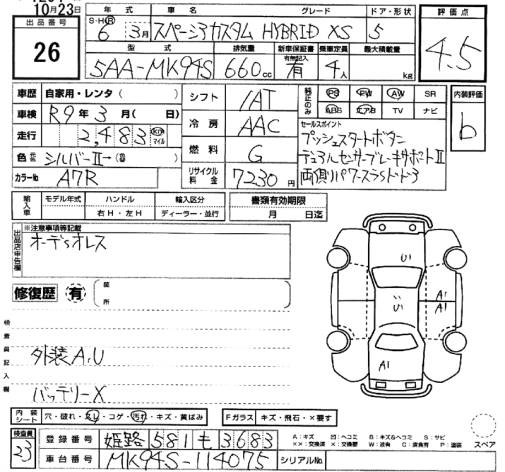 10月23日
出品番号
26
年式 車名 グレード ドア・形状
S・H・R 6年 3月 スペーシアカスタム HYBRID XS 5
評価点
4.5
型式 排気量 新車保証書 乗車定員 最大積載量
5AA-MK94S 660cc 有無記入 有 4人 kg
車歴 自家用・レンタ( )
車検 R9年3月( 日)
走行 2,483 km マイル
色 シルバーⅡ→( )
カラーNo A7R
シフト IAT
冷房 AAC
燃料 G
リサイクル料金 7230円
PS PW AW SR
ABS エアB TV ナビ
セールスポイント
プッシュスタートボタン
デュアルセンサーブレーキサポートⅡ
両側パワースライドドア
内装評価
b
輸入車 モデル年式 ハンドル 輸入区分
年 右H・左H ディーラー・並行
書類有効期限
月 日迄
出品店申告欄
※注意事項等記載
オーディオレス
修復歴 有 箇所
検査員記入欄
外装A.U
バッテリーX
U
U
A1
A1
A1
内装シート 穴・破れ・スレ・コゲ・汚れ・キズ・黄ばみ
Fガラス キズ・飛石・X要す
検査員
23
登録番号 姫路 581 も 3683
車台番号 MK94S-114075
シリアルNo.
A:キズ U:ヘコミ B:キズ&ヘコミ S:サビ
XX:交換済 X:交換要 W:波有 C:腐食有 P:塗装
スペア